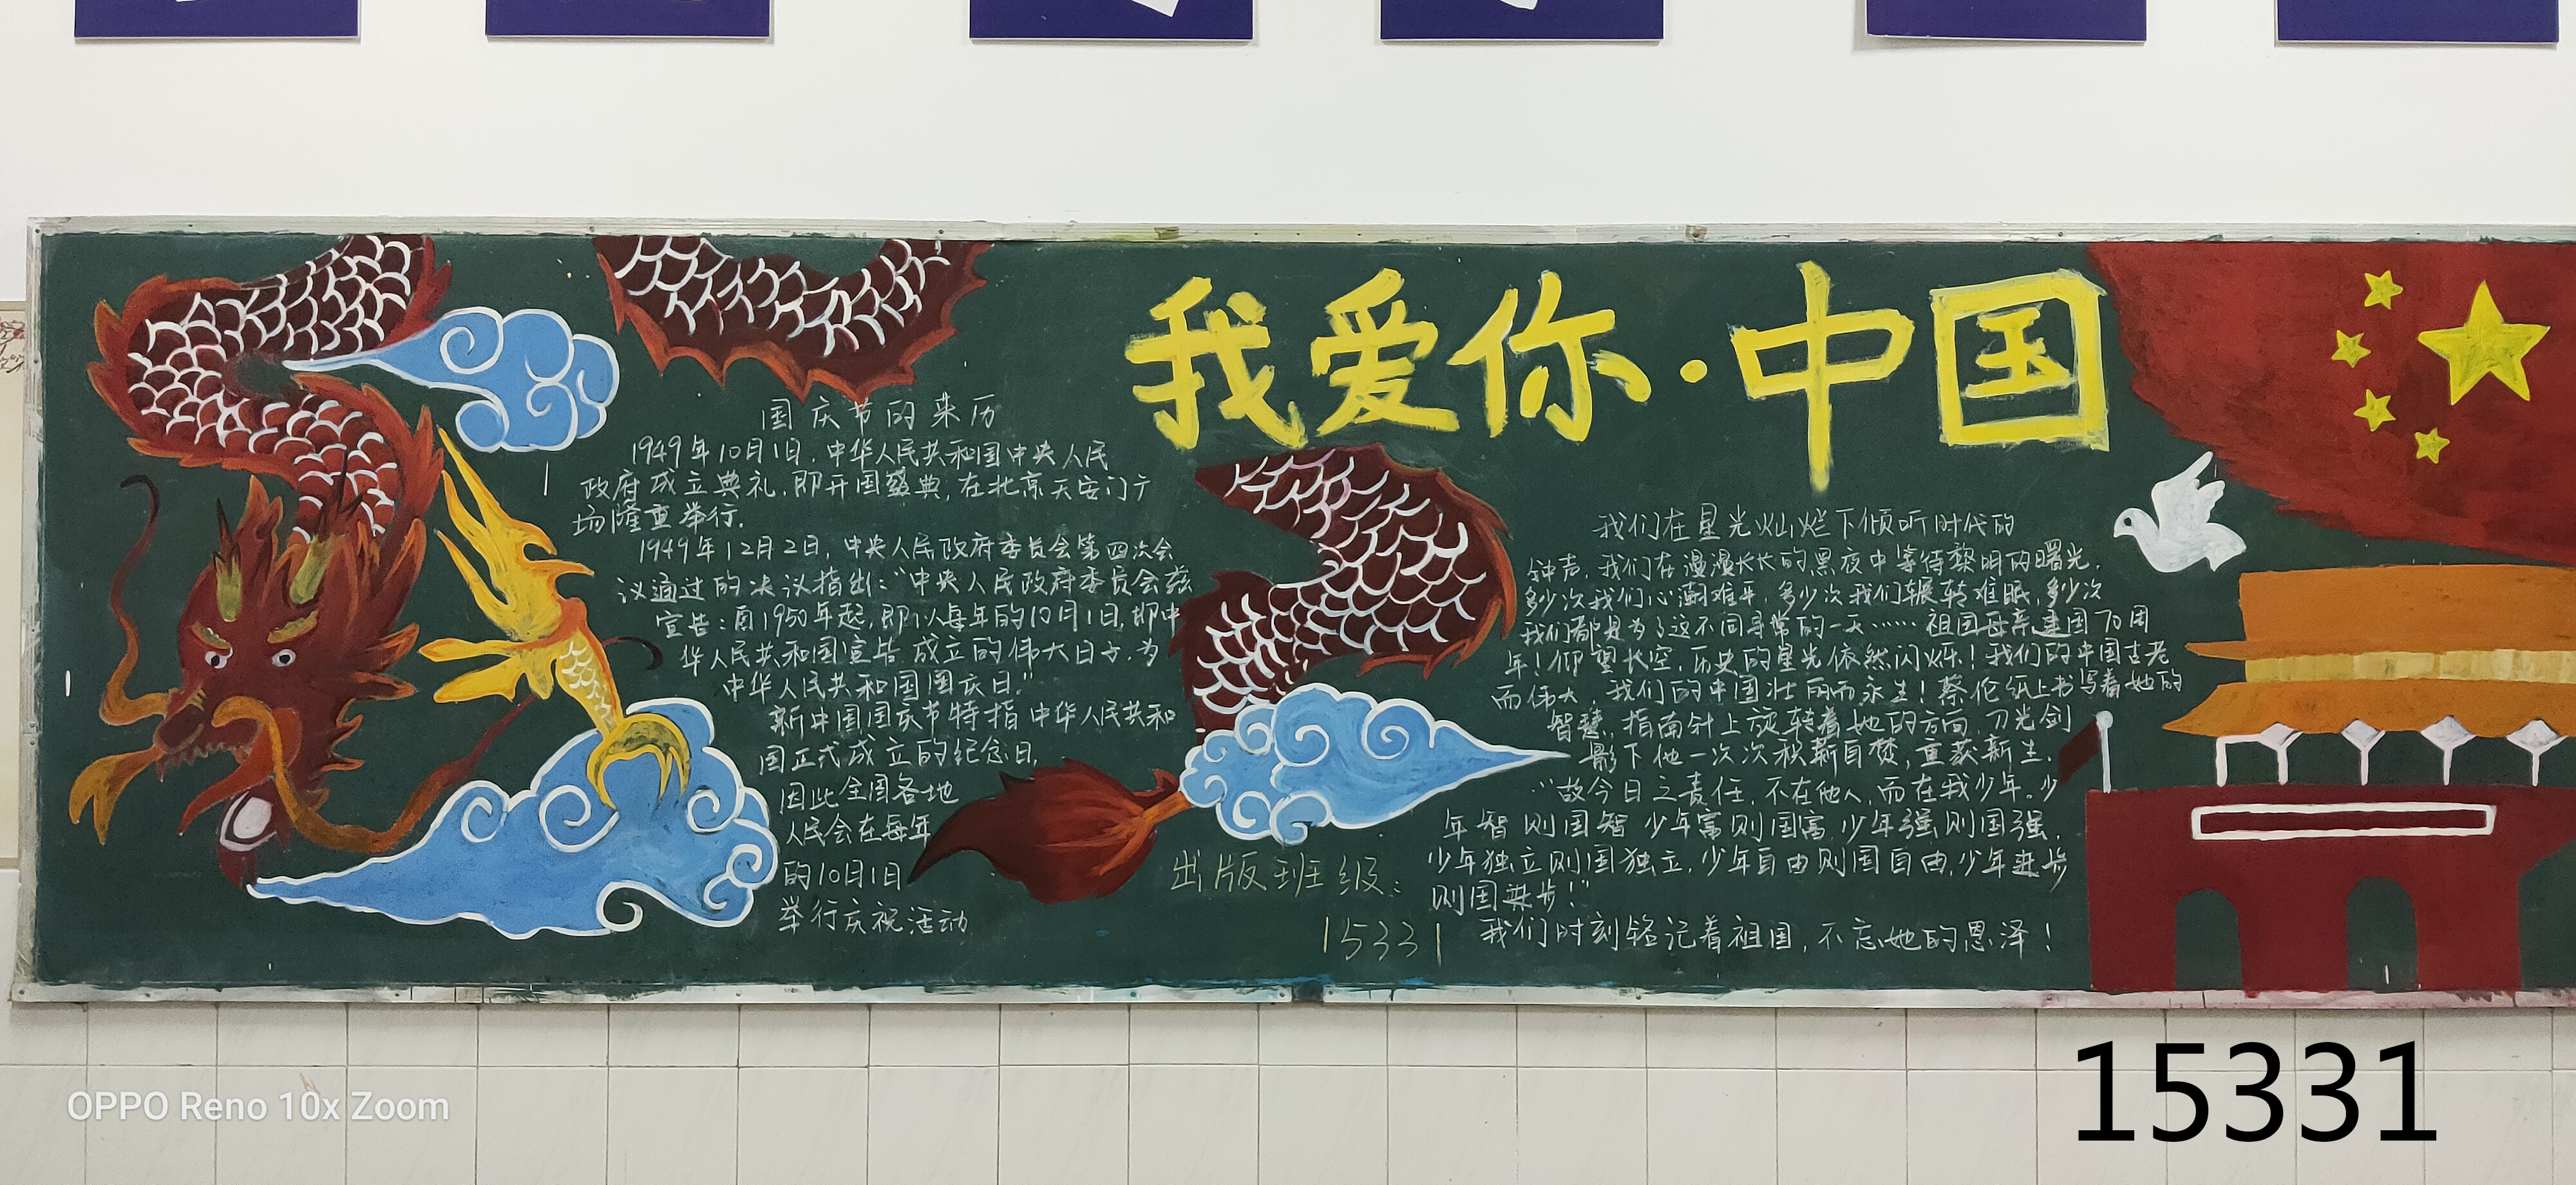 我爱你·中国
国庆节的来历
1949年10月1日,中华人民共和国中央人民
政府成立典礼,即开国盛典,在北京天安门广
场隆重举行.
1949年12月2日,中央人民政府委员会第四次会
议通过的决议指出:“中央人民政府委员会兹
宣告:自1950年起,即以每年的10月1日,即中
华人民共和国宣告成立的伟大日子,为
中华人民共和国国庆日.”
新中国国庆节特指中华人民共和
国正式成立的纪念日,
因此全国各地
人民会在每年
的10月1日
举行庆祝活动
出版班级:
15331
我们在星光灿烂下倾听时代的
钟声,我们在漫漫长长的黑夜中等待黎明的曙光,
多少次我们心潮难平,多少次我们辗转难眠,多少次
我们都是为了这不同寻常的一天……祖国母亲建国70周
年!仰望长空,历史的星光依然闪烁!我们的中国古老
而伟大,我们的中国壮丽而永生!蔡伦纸上书写着她的
智慧,指南针上旋转着她的方向,刀光剑
影下他一次次积薪自焚,重获新生.
“故今日之责任,不在他人,而在我少年。少
年智则国智,少年富则国富,少年强则国强,
少年独立则国独立,少年自由则国自由,少年进步
则国进步!”
我们时刻铭记着祖国,不忘她的恩泽!
OPPO Reno 10x Zoom
15331